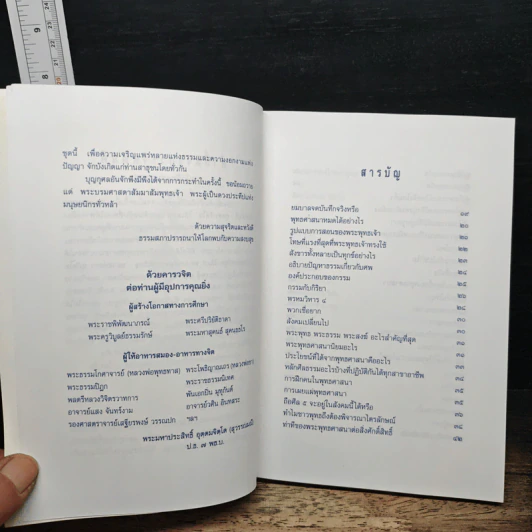 ชุดนี้ เพื่อความเจริญแพร่หลายแห่งธรรมและความงอกงามแห่ง
ปัญญา จักบังเกิดแก่ท่านสาธุชนโดยทั่วกัน
บุญกุศลอันจักพึงมีพึงได้จากการกระทำในครั้งนี้ ขอน้อมถวาย
แด่ พระบรมศาสดาสัมมาสัมพุทธเจ้า พระผู้เป็นดวงประทีปแห่ง
มนุษยนิกรทั่วหล้า
ด้วยความสุจริตและหวังดี
ธรรมสภาปรารถนาให้โลกพบกับความสงบสุข
ด้วยคารวจิต
ต่อท่านผู้มีอุปการคุณยิ่ง
ผู้สร้างโอกาสทางการศึกษา
พระราชพิพัฒนาภรณ์ พระศรีปริยัติธาดา
พระครูวิบูลย์ธรรมรักษ์ พระมหาสุคนธ์ สุคนฺธโร
ผู้ให้อาหารสมอง-อาหารทางจิต
พระธรรมโกศาจารย์ (หลวงพ่อพุทธทาส)
พระธรรมปิฎก พระราชธรรมนิเทศ
พลตรีหลวงวิจิตรวาทการ พันเอกปิ่น มุทุกันต์
อาจารย์แสง จันทร์งาม อาจารย์วศิน อินทสระ
รองศาสตราจารย์เสฐียรพงษ์ วรรณปก ฯลฯ
พระมหาประสิทธิ์
ป.ธ. ๗ พธ.บ.
สารบัญ
ยมบาลจดบันทึกจริงหรือ ๑๙
พุทธศาสนาหมดได้อย่างไร ๒๑
รูปแบบการสอนของพระพุทธเจ้า ๒๒
โทษที่แรงที่สุดที่พระพุทธเจ้าทรงใช้ ๒๓
สังขารทั้งหลายเป็นทุกข์อย่างไร ๒๔
อธิบายปัญหาธรรมเกี่ยวกับศพ
องค์ประกอบของกรรม
กรรมกับกิริยา
พรหมวิหาร ๔
พวกเชื่อยาก ๓๐
สังคมเปลี่ยนไป ๓๐
พระพุทธ พระธรรม พระสงฆ์ อะไรสำคัญที่สุด ๓๑
พระพุทธศาสนานิยมอะไร
ประโยชน์ที่ได้จากพุทธศาสนาคืออะไร
หลักศีลธรรมอะไรบ้างที่ปฏิบัติกันได้ทุกสาขาอาชีพ
การฝึกคนในพุทธศาสนา
การเผยแผ่พุทธศาสนา
ถือศีล ๕ จะอยู่ในสังคมนี้ได้หรือ
ทำไมชาวพุทธถึงต้องพิจารณาไตรลักษณ์
ท่าทีของพระพุทธศาสนาต่อสิ่งศักดิ์สิทธิ์ ๔๒